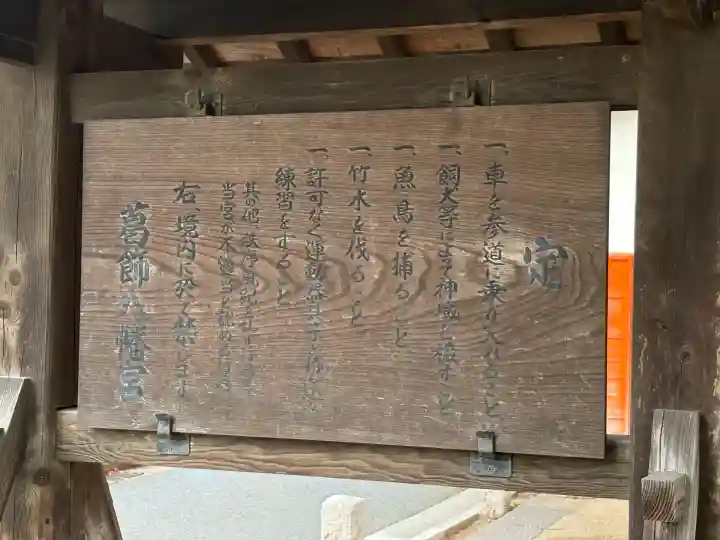 定
一、車を参道に乗り入れること
一、飼犬等に依て神域を穢すこと
一、魚鳥を捕ること
一、竹木を伐ること
一、許可なく運動器具等を使
練習をすること
其の他、
当宮が不適当と認めた行為
右、境内に於て禁じます
葛飾八幡宮